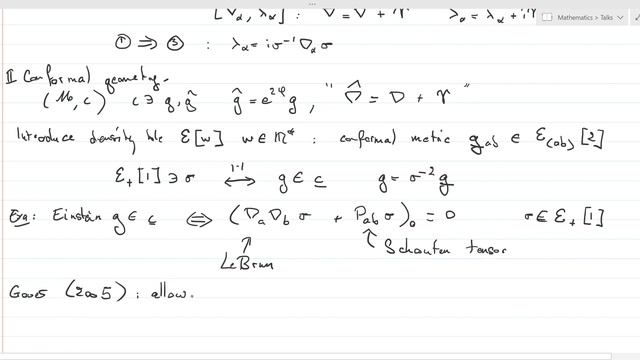 [∇_α, λ_α] : ∇̂ = ∇ + Υ λ̂_α = λ_α + iΥ
Mathematics > Talks
① ⇒ ③ : λ_α = iσ⁻¹ ∇_α σ
II Conformal geometry.
(M, c) c ∋ g, ĝ ĝ = e^{2φ} g, " ∇̂ = ∇ + Υ "
Introduce density bdle ℰ[w] w ∈ ℝ : conformal metric g_ab ∈ ℰ_(ab)[2]
ℰ₊[1] ∋ σ ⟷ g ∈ c g = σ⁻² g
1-1
Einstein g ∈ c ⟺ (∇_a ∇_b σ + P_ab σ)₀ = 0 σ ∈ ℰ₊[1]
↑ LeBrun ↑ Schouten tensor
(2005) : allow.